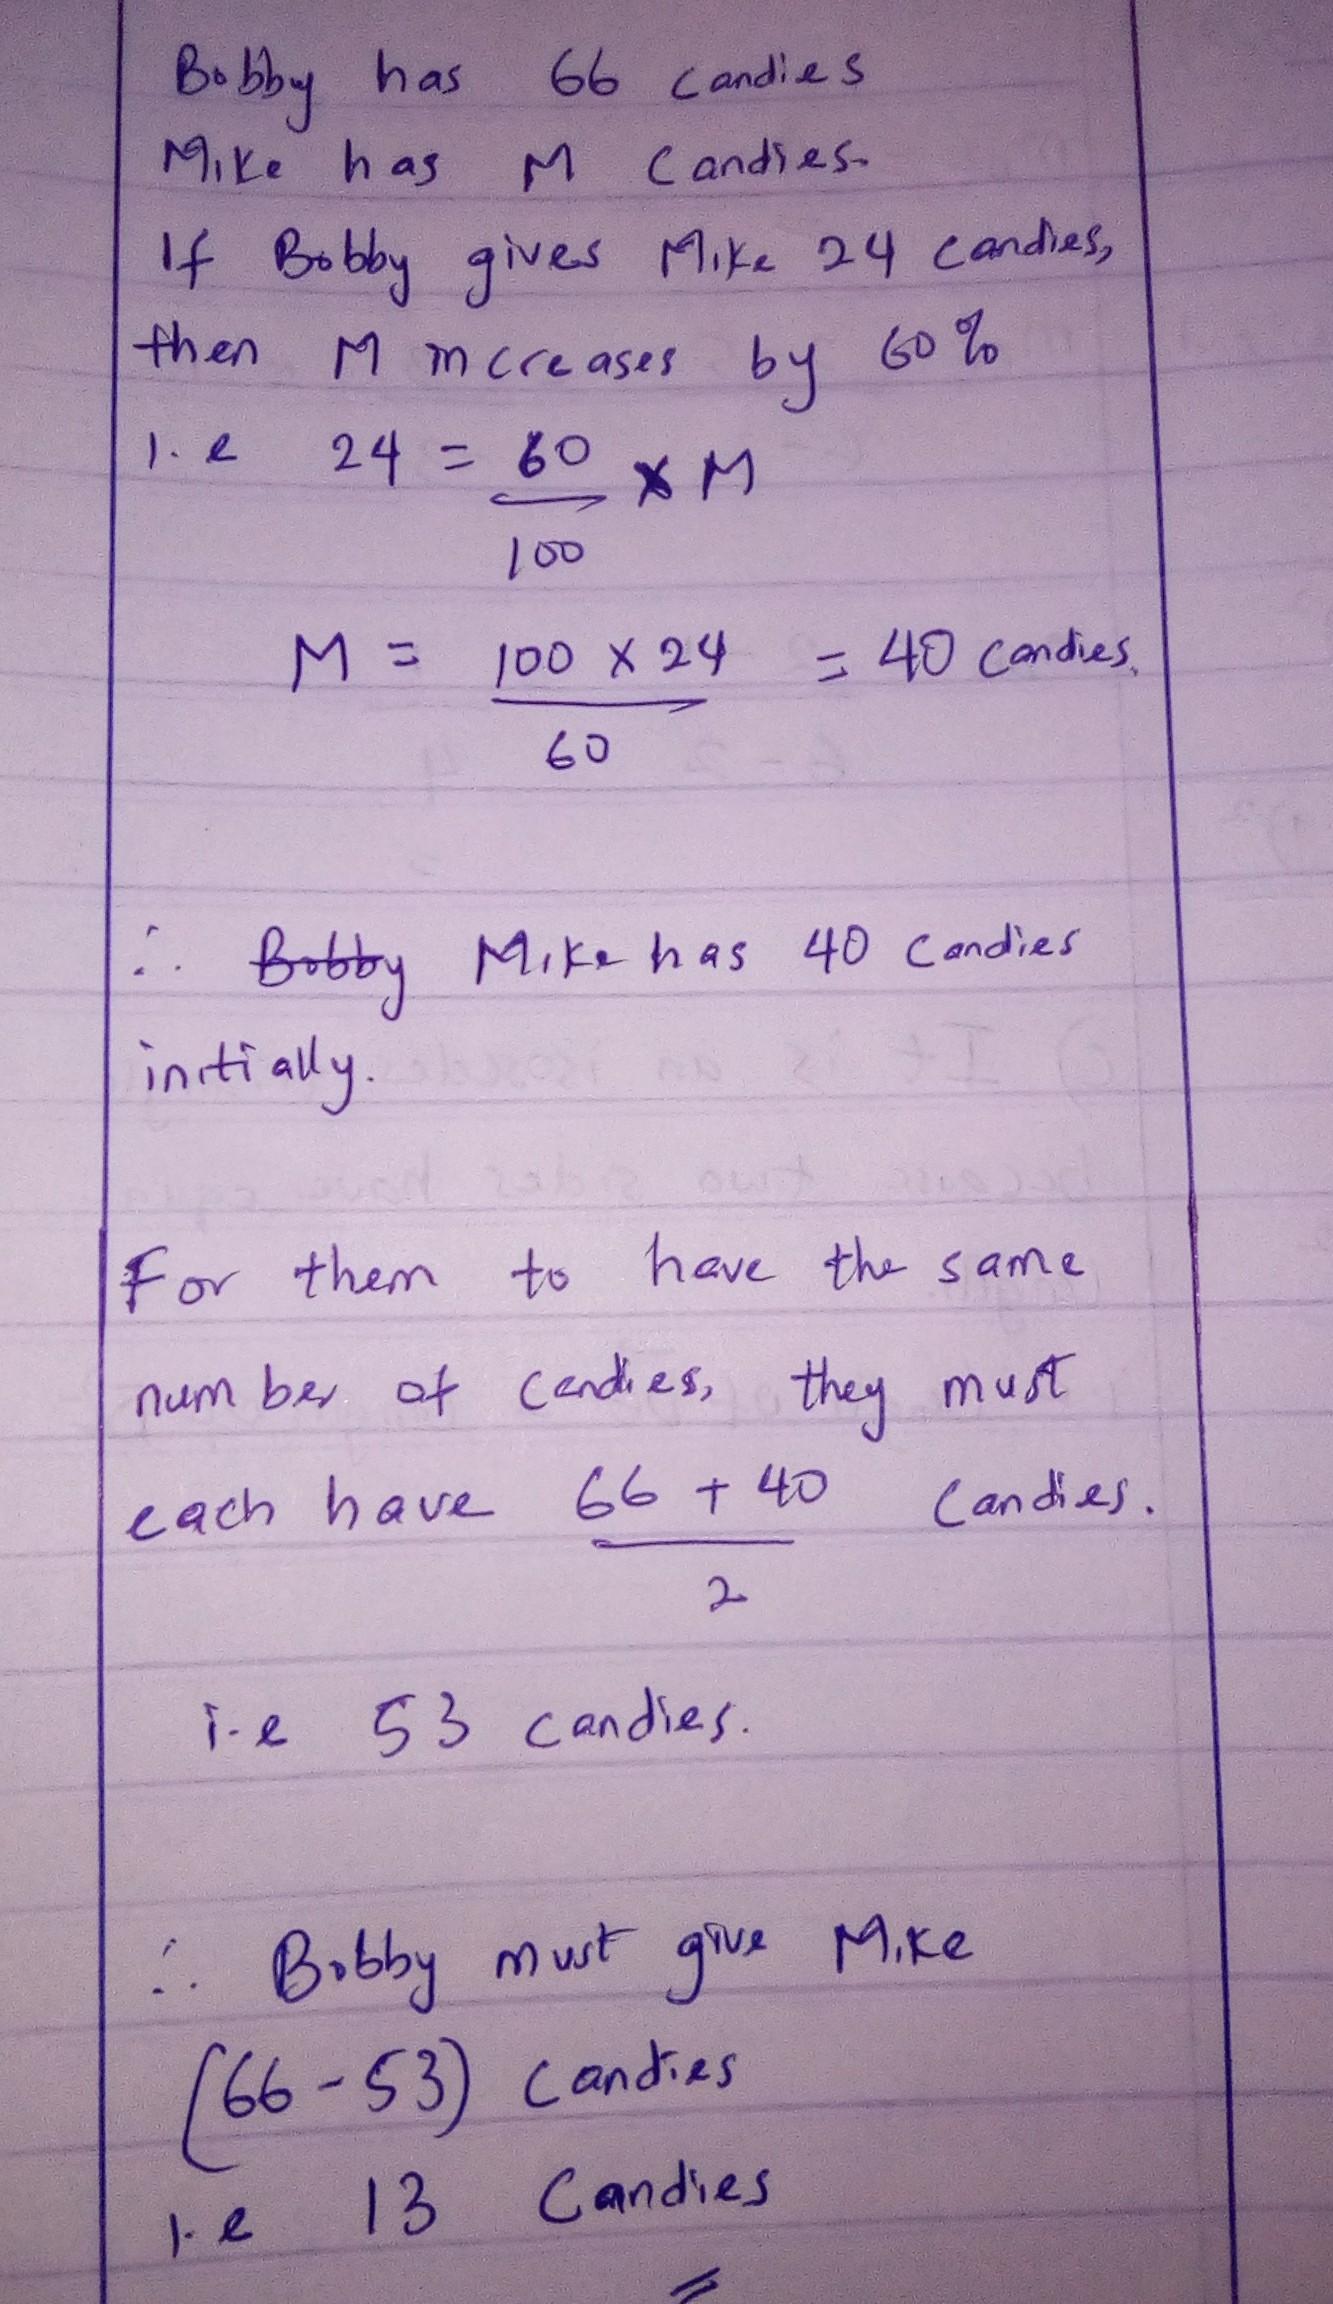 Bobby has 66 candies
Mike has M candies.
If Bobby gives Mike 24 candies,
then M increases by 60%
i.e 24 = 60/100 x M
M = 100 x 24/60 = 40 candies.
∴ Bobby Mike has 40 candies
initially.
For them to have the same
number of candies, they must
each have 66 + 40/2 candies.
i.e 53 candies.
∴ Bobby must give Mike
(66-53) candies
i.e 13 candies